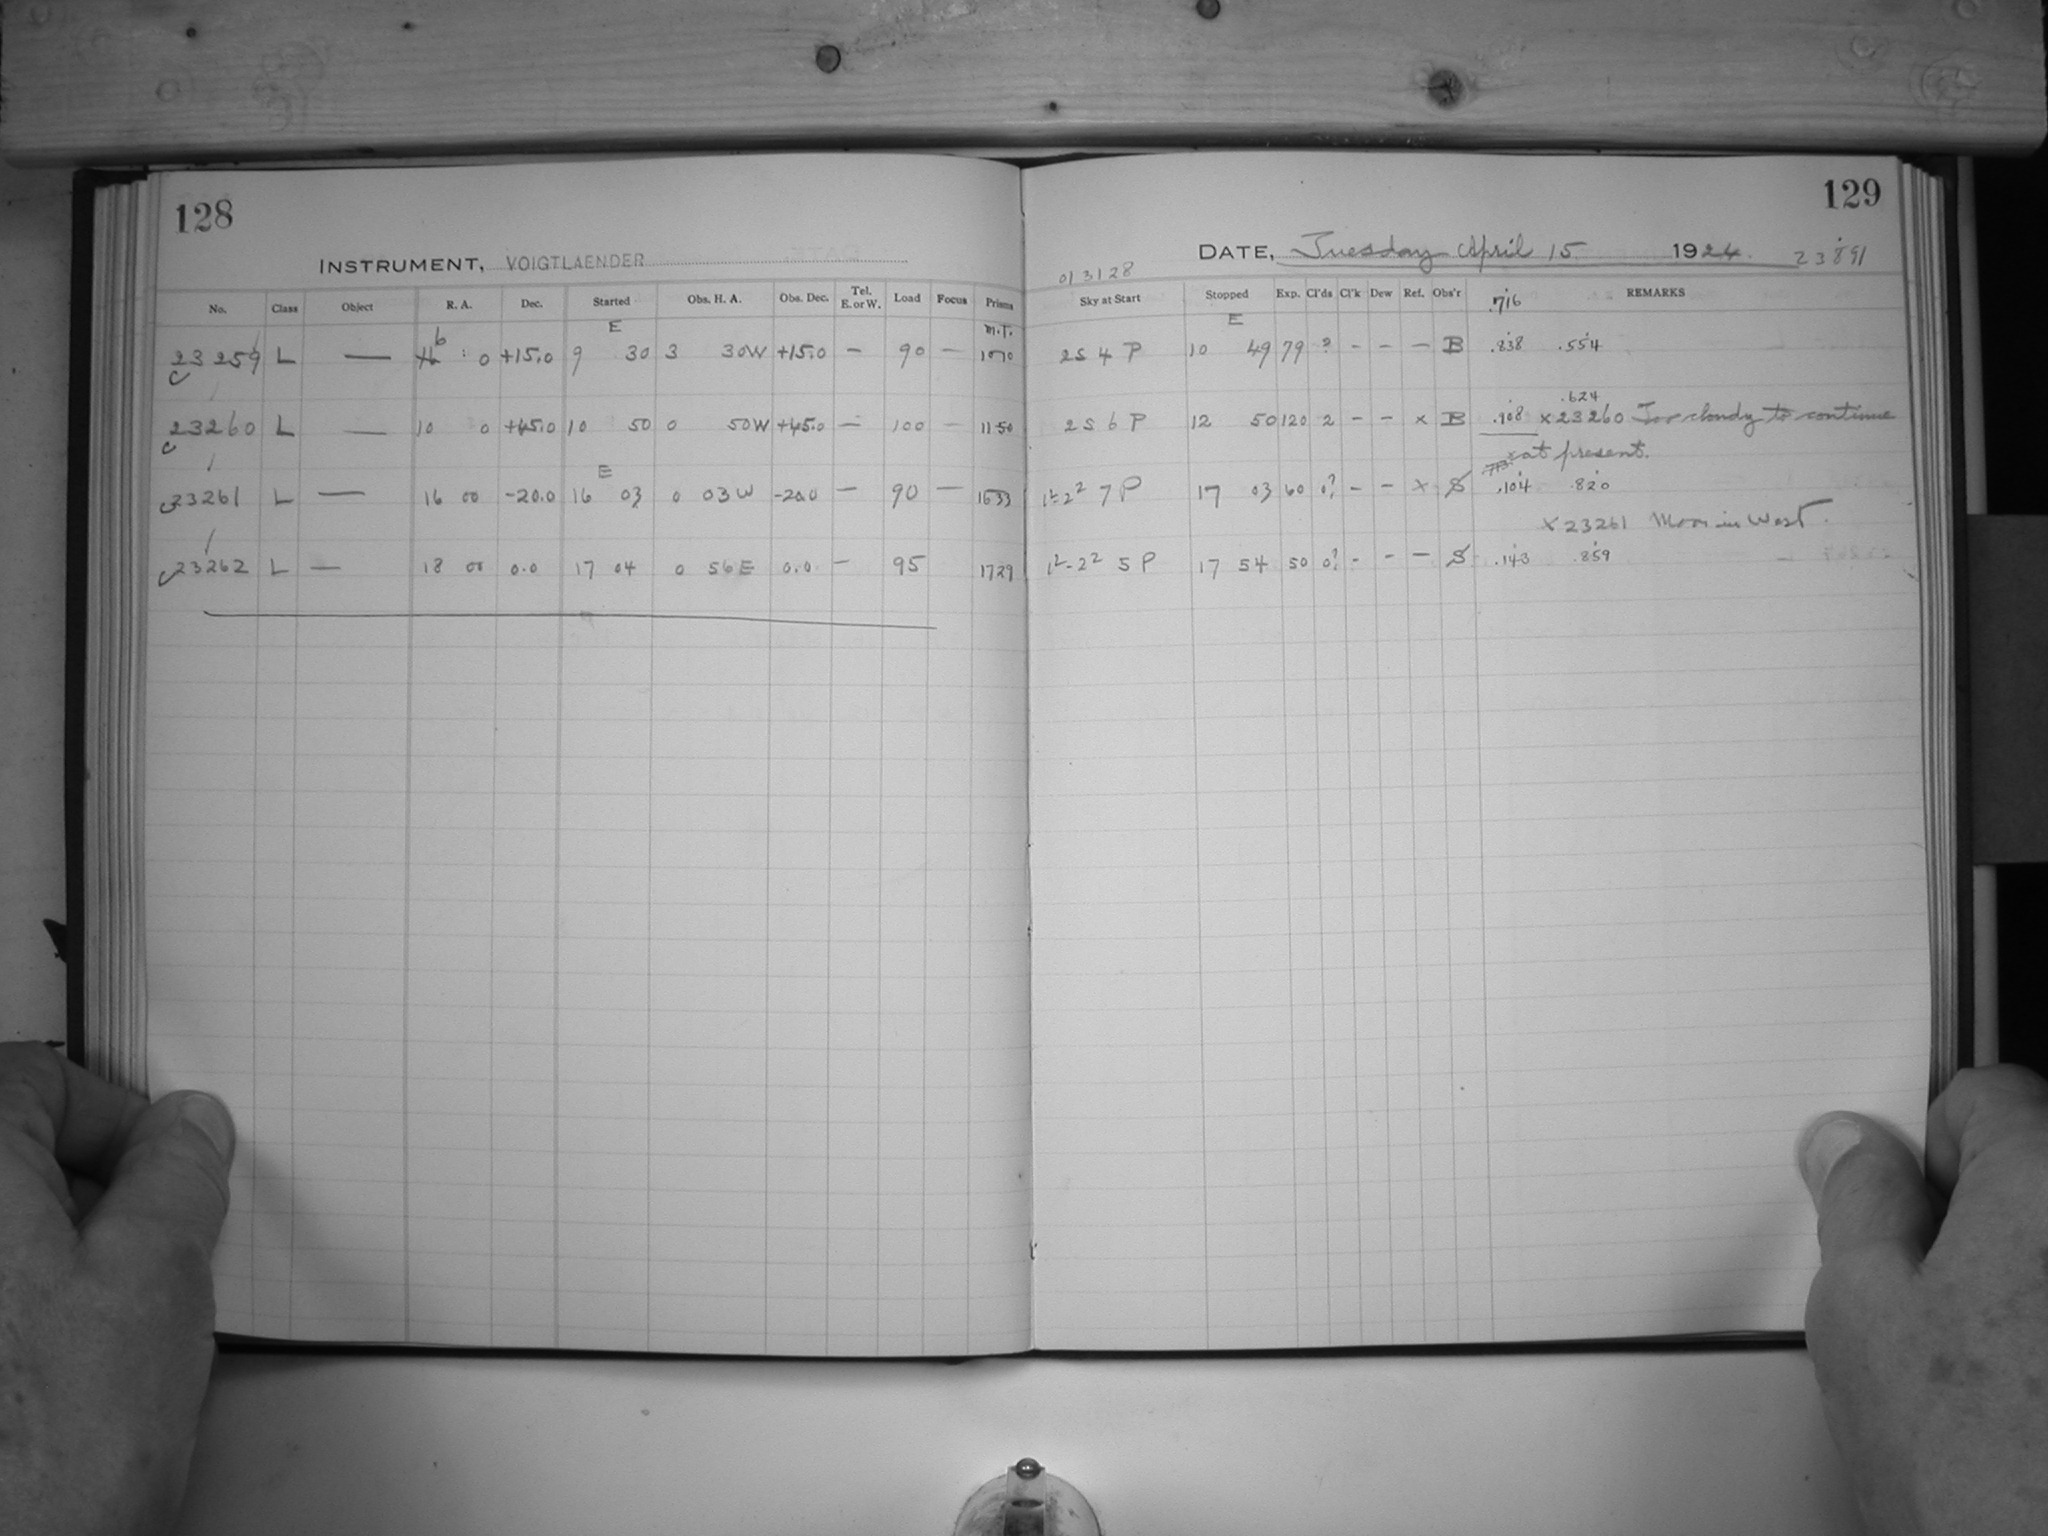 128
INSTRUMENT, VOIGTLAENDER
No. Class Object R. A. Dec. Started Obs. H. A. Obs. Dec. Tel. E. or W. Load Focus Prisms
E M.T.
6
23259 L — 0 +15.0 9 30 3 30W +15.0 — 90 —
23260 L — 10 0 +45.0 10 50 0 50W +45.0 — 100 — 1150
E
23261 L — 16 00 -20.0 16 03 0 03W -20.0 — 90 — 1633
23262 L — 18 00 0.0 17 04 0 56E 0.0 — 95 1729
129
DATE, Tuesday April 15 1924. 23891
013128
Sky at Start Stopped Exp. Cl'ds Cl'k Dew Ref. Obs'r REMARKS
E .716
2S 4 P 10 49 79 ? - - — B .838 .554
.624
2S 6 P 12 50 120 2 - - x B .908 x23260 Too cloudy to continue
at present.
1²-2² 7 P 17 03 60 0? - - x S .104 .820
x23261 Moon in West.
1²-2² 5 P 17 54 50 0? - - — S .143 .859